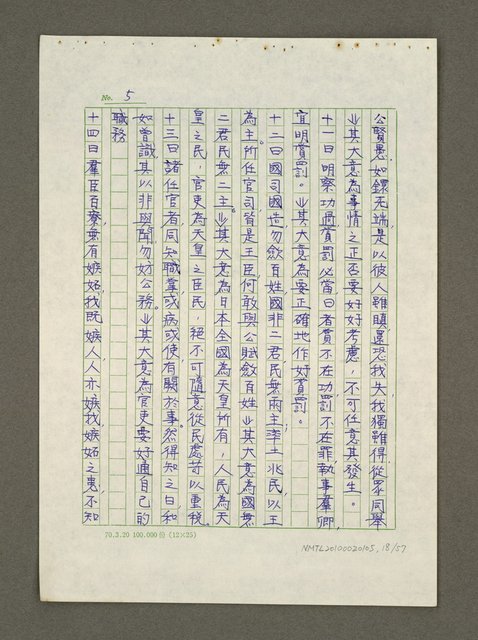 No. 5
公賢愚如鐶无端,是以彼人雖瞋還恐我失,我獨雖得,從眾同舉
业其大意為事情之正否要好好考慮,不可任意其發生。
十一曰明察功過賞罰必當日者賞不在功,罰不在罪執事羣卿,
宜明賞罰。业其大意為要正確地作好賞罰。
十二曰國司國造勿斂百姓國非二君民無兩主,率土兆民以王
為主,所任官司皆是王臣何敢與公賦斂百姓业其大意為國無
二君民無二主业其大意為日本全國為天皇所有,人民為天
皇之民,官吏為天皇之臣民,絕不可隨意從民處苛以重稅。
十三曰諸任官者,同知職掌或病或使有闕於事,然得知之日,和
如曾識,其以非與聞勿妨公務。业其大意為官吏要好通自己的
職務
十四曰羣臣百寮無有嫉妬,我既嫉人,人亦嫉我,嫉妬之患不知
70.3.20 100.000份 (12×25)
NMTL20100020105, 18/57